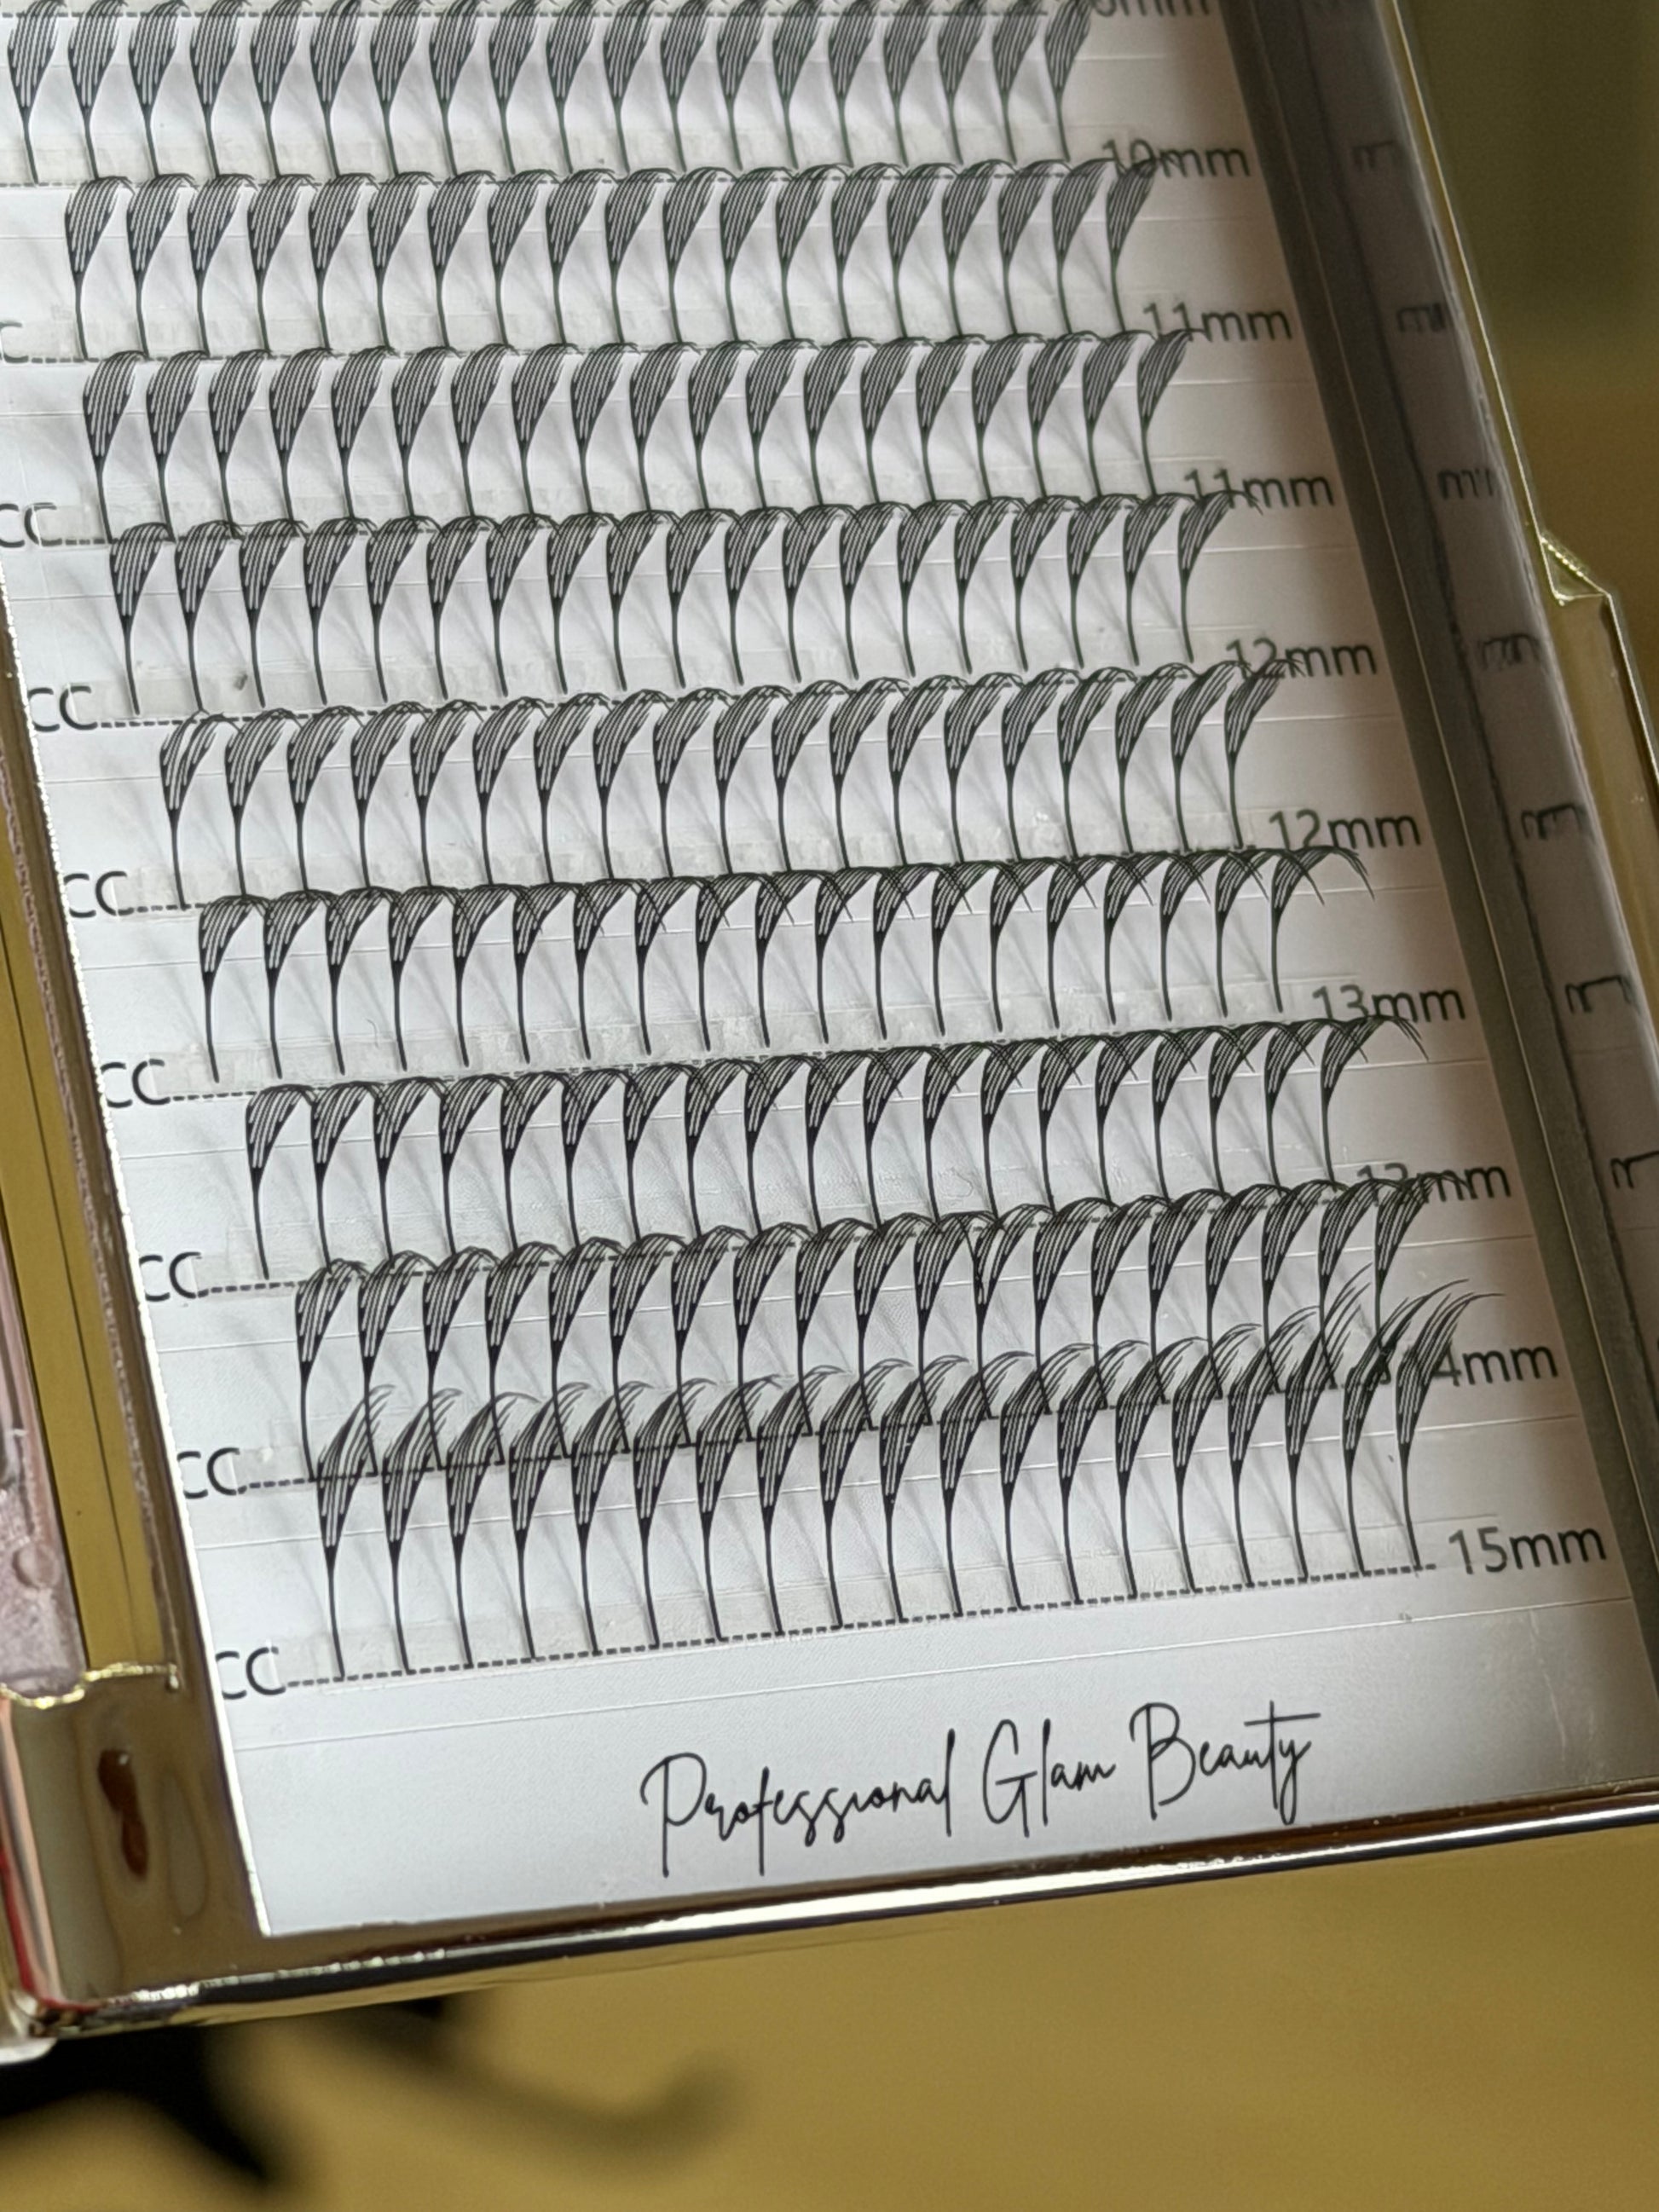 10mm
C 11mm
CC 11mm
CC 12mm
CC 12mm
CC 13mm
CC 13mm
CC 14mm
CC 15mm
Professional Glam Beauty